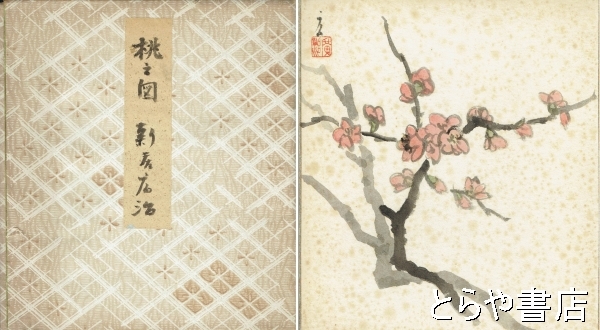 桃之図 新居廣治
とらや書店